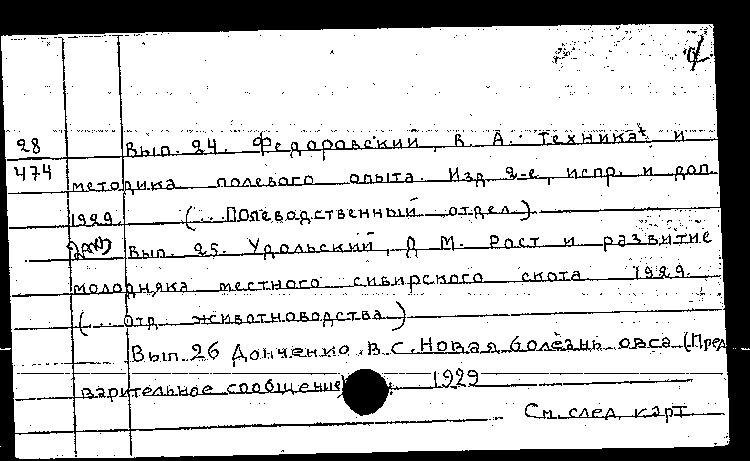 28 Вып. 24. Федоровский, В. А. Техника и
474 методика полевого опыта. Изд 2-е, испр. и доп.
1929. (... Полеводственный отдел.)
Вып. 25. Удольский, Д М. Рост и развитие
молодняка местного сибирского скота 1929.
(... отд. животноводства)
Вып. 26 Донченко. В. С. Новая болезнь овса (Пред
варительное сообщение) 1929
См. след. карт.